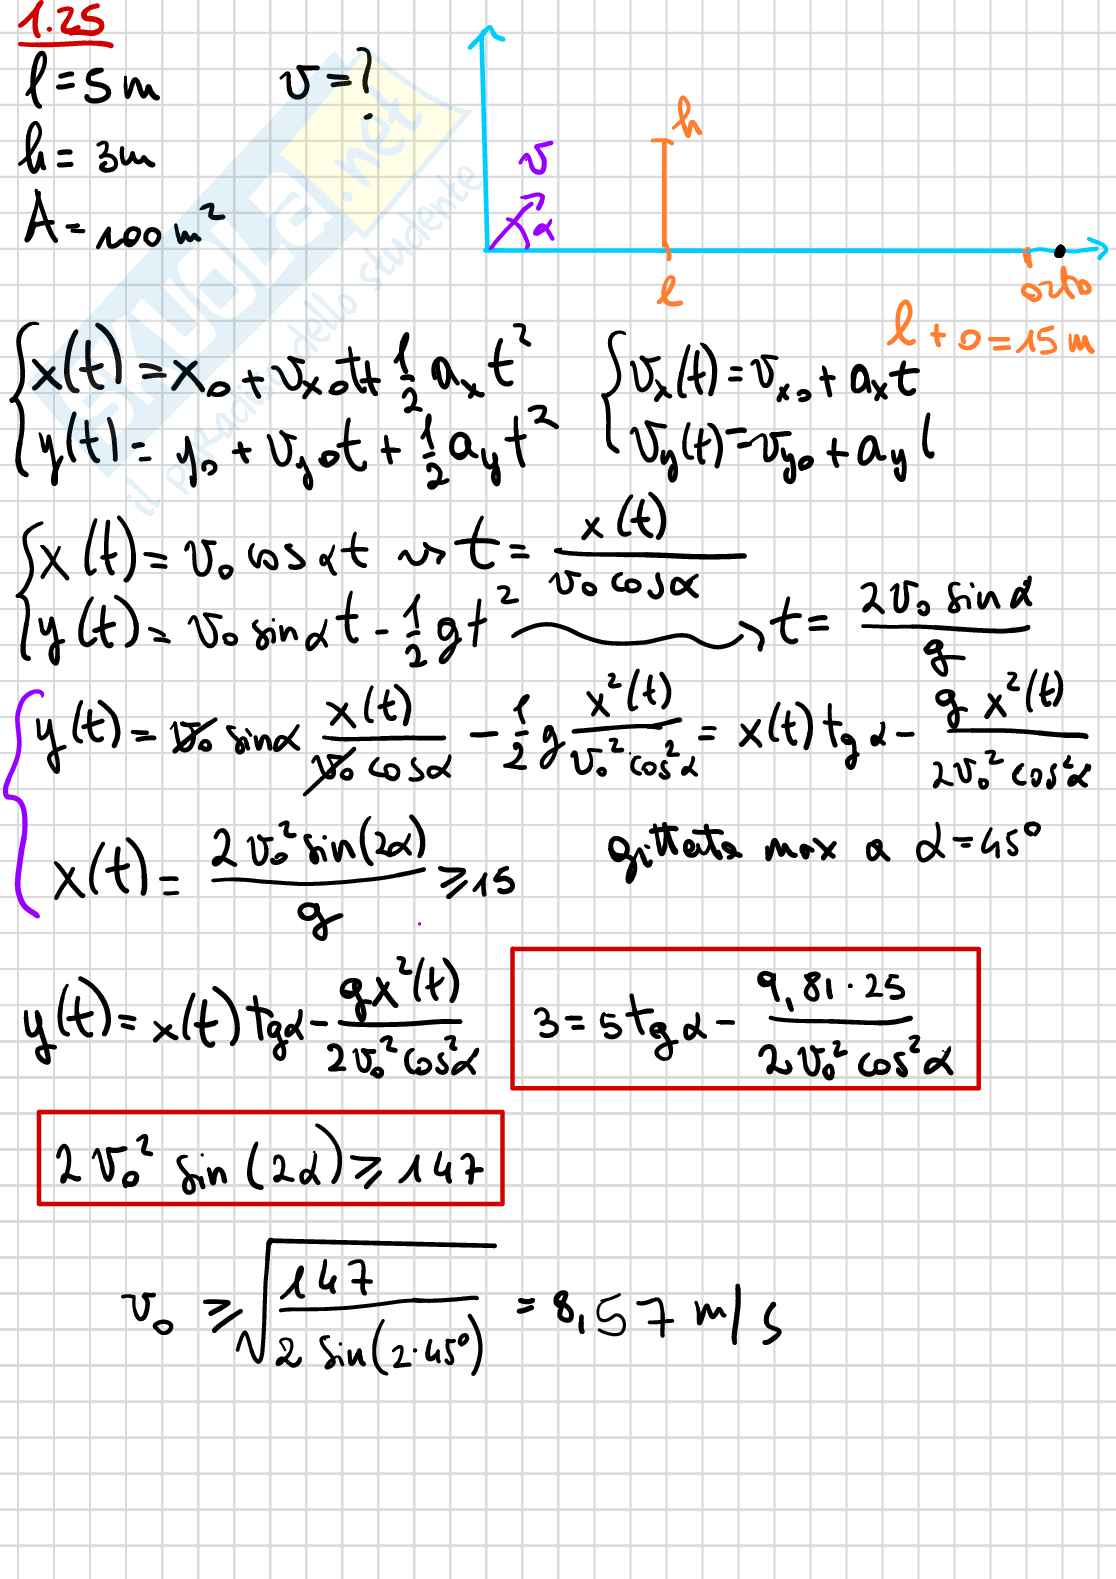 1.25
l = 5 m
v = ?
h = 3m
A = 100 m²
h
v
α
l
orto
l + o = 15 m
x(t) = x₀ + vₓ₀t + 1/2 aₓ t²
y(t) = y₀ + v_y₀t + 1/2 a_y t²
vₓ(t) = vₓ₀ + aₓ t
v_y(t) = v_y₀ + a_y t
x(t) = v₀ cos α t ⇝ t = x(t) / (v₀ cos α)
y(t) = v₀ sin α t - 1/2 g t² ⇝ t = 2v₀ sin α / g
y(t) = v₀ sin α x(t) / (v₀ cos α) - 1/2 g x²(t) / (v₀² cos² α) = x(t) tg α - g x²(t) / (2v₀² cos² α)
x(t) = 2 v₀² sin(2α) / g ≥ 15
gittata max a α = 45°
y(t) = x(t) tg α - g x²(t) / (2v₀² cos² α)
3 = 5 tg α - 9,81 · 25 / (2 v₀² cos² α)
2 v₀² sin (2α) ≥ 147
v₀ ≥ √(147 / (2 sin(2·45°))) = 8,57 m/s
SKUOLA.net
il paradiso dello studente